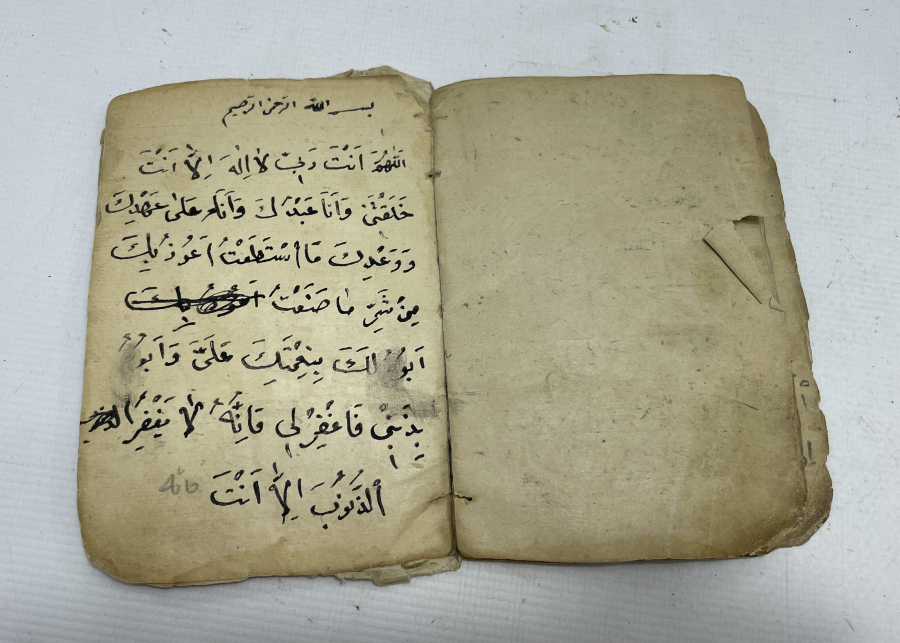 بسم الله الرحمن الرحيم
اَللّٰهُمَّ اَنْتَ رَبِّی لَا اِلٰهَ اِلَّا اَنْتَ
خَلَقْتَنِیْ وَاَنَا عَبْدُكَ وَاَنَا عَلٰی عَهْدِكَ
وَوَعْدِكَ مَا اسْتَطَعْتُ اَعُوْذُ بِكَ
مِنْ شَرِّ مَا صَنَعْتُ
اَبُوْءُ لَكَ بِنِعْمَتِكَ عَلَیَّ وَاَبُوْءُ
بِذَنْبِیْ فَاغْفِرْ لِی فَاِنَّهُ لَا يَغْفِرُ
الذُّنُوْبَ اِلَّا اَنْتَ فانه